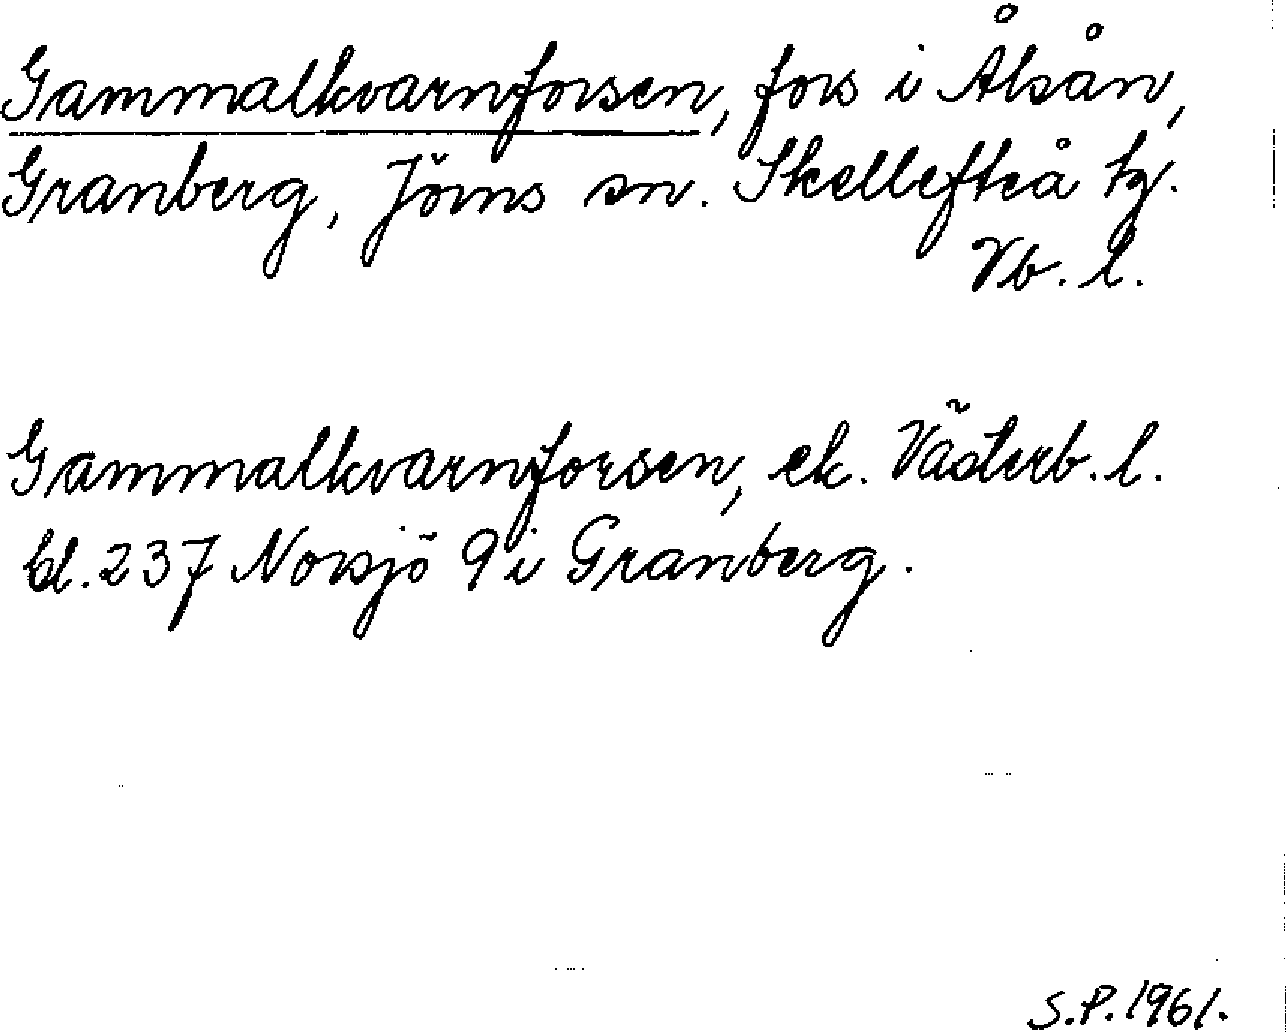 Gammalkvarnforsen, fors i Ålsån,
Granberg, Jörns sn. Skellefteå tg.
Vb. l.
Gammalkvarnforsen, ek. Västerb. l.
bl. 237 Norsjö 9 i Granberg.
S.P. 1961.